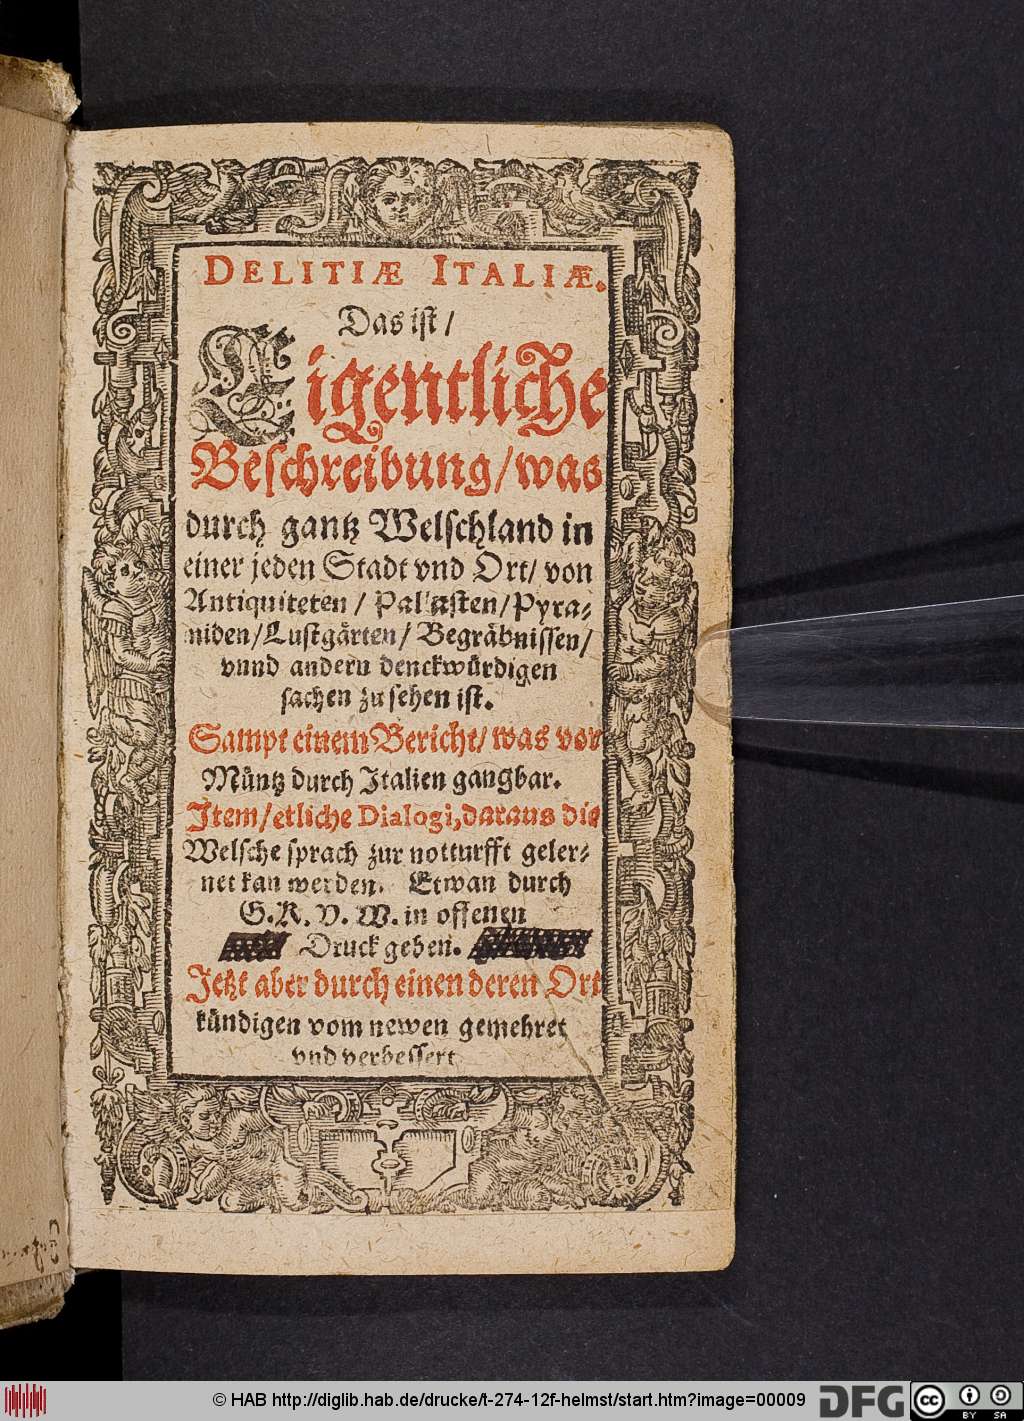 DELITIÆ ITALIÆ.
Das ist /
Eigentliche
Beschreibung / was
durch gantz Welschland in
einer jeden Stadt vnd Ort / von
Antiquiteten / Pallästen / Pyra-
miden / Lustgärten / Begräbnissen /
vnnd andern denckwürdigen
sachen zu sehen ist.
Sampt einem Bericht / was vor
Müntz durch Italien gangbar.
Item / etliche Dialogi, daraus die
Welsche sprach zur notturfft geler-
net kan werden. Etwan durch
G. K. V. W. in offenen
Druck geben.
Jetzt aber durch einen deren Ort
kündigen vom newen gemehret
vnd verbessert
© HAB http://diglib.hab.de/drucke/t-274-12f-helmst/start.htm?image=00009
DFG
cc BY SA